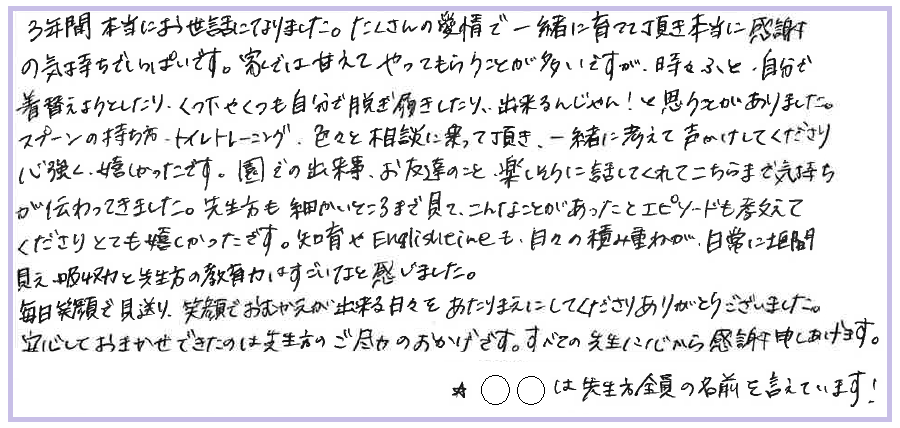 3年間 本当にお世話になりました。たくさんの愛情で一緒に育てて頂き本当に感謝
の気持ちでいっぱいです。家では甘えてやってもらうことが多いですが、時々ふと、自分で
着替えようとしたり、くつ下やくつも自分で脱ぎ履きしたり、出来るんじゃん!と思うことがありました。
スプーンの持ち方、トイレトレーニング、色々と相談に乗って頂き、一緒に考えて声かけしてくださり
心強く、嬉しかったです。園での出来事、お友達のこと、楽しそうに話してくれてこちらまで気持ち
が伝わってきました。先生方も細かいところまで見て、こんなことがあったとエピソードも教えて
くださりとても嬉しかったです。知育やEnglishtimeも、日々の積み重ねが、日常に垣間
見え、吸収力と先生方の教育力はすごいなと感じました。
毎日笑顔で見送り、笑顔でおむかえが出来る日々をあたりまえにしてくださりありがとうございました。
安心しておまかせできたのは先生方のご尽力のおかげです。すべての先生に心から感謝申しあげます。
☆ ○○は先生方全員の名前を言えています!